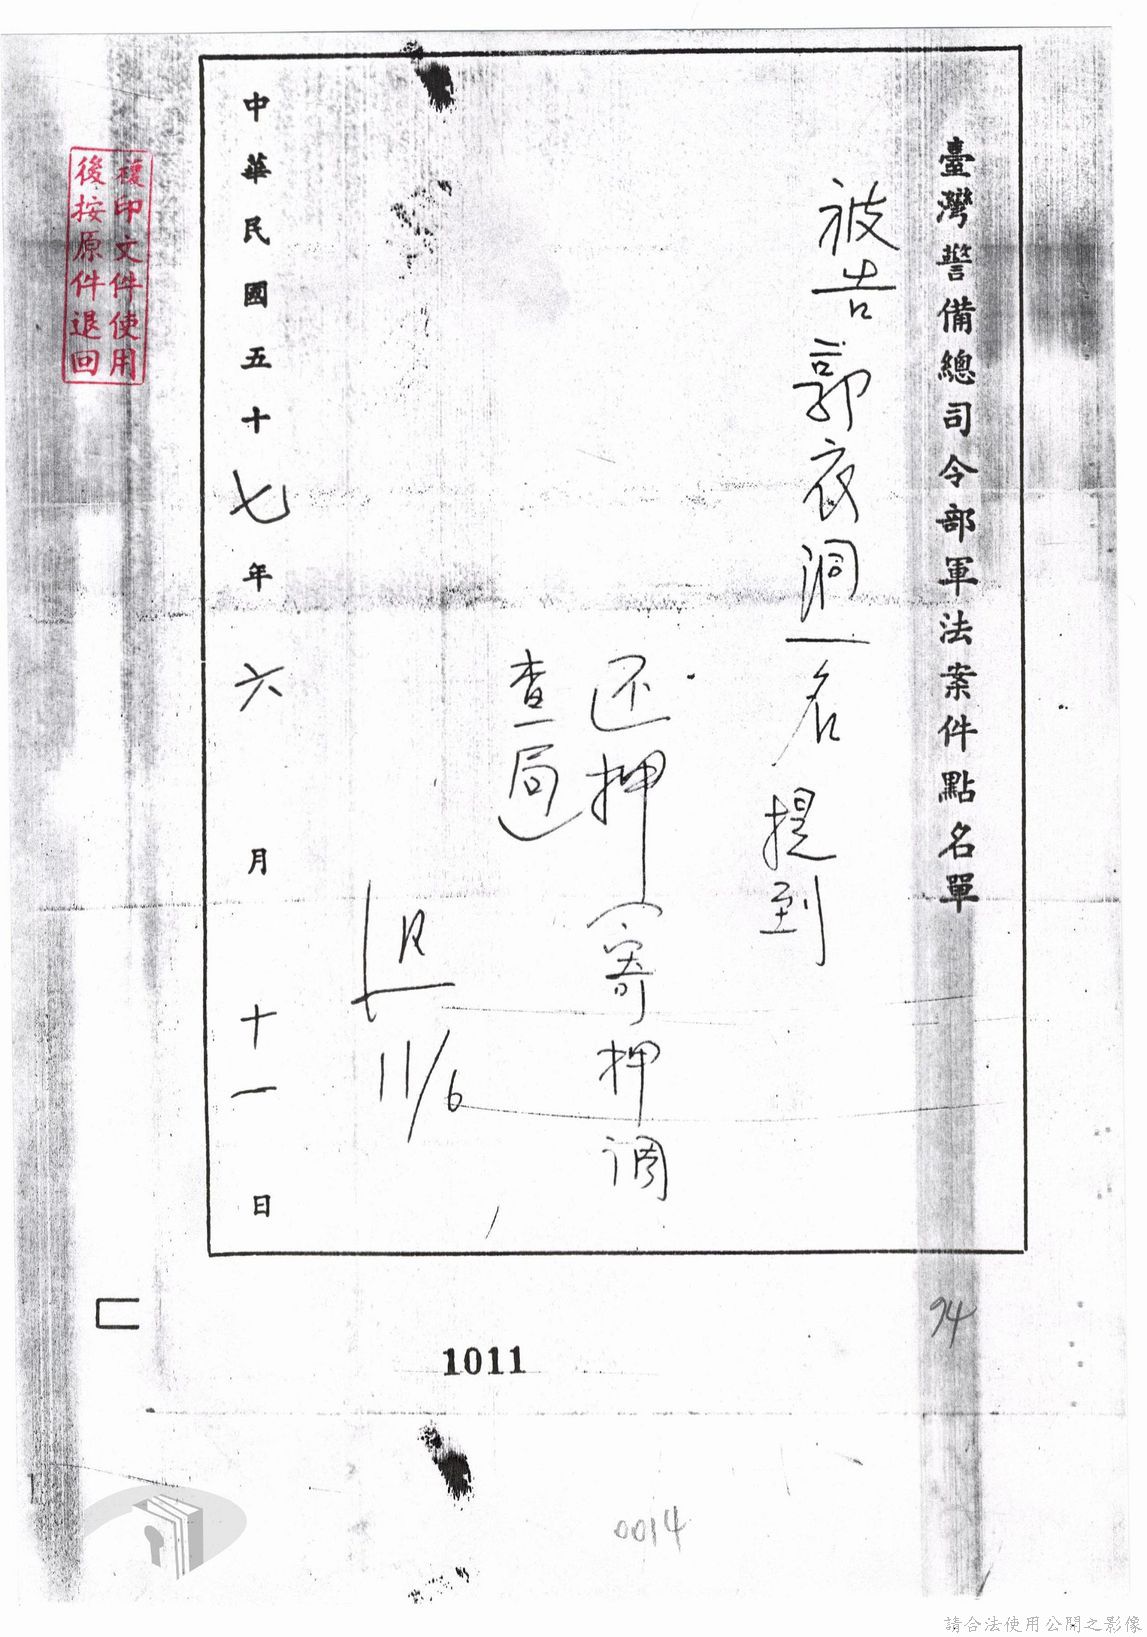 臺灣警備總司令部軍法案件點名單
被告郭衣洞一名提到
还押(寄押调
查局)
11/6
中華民國五十七年六月十一日
複印文件使用
後按原件退回
94
1011
0014
請合法使用公開之影像